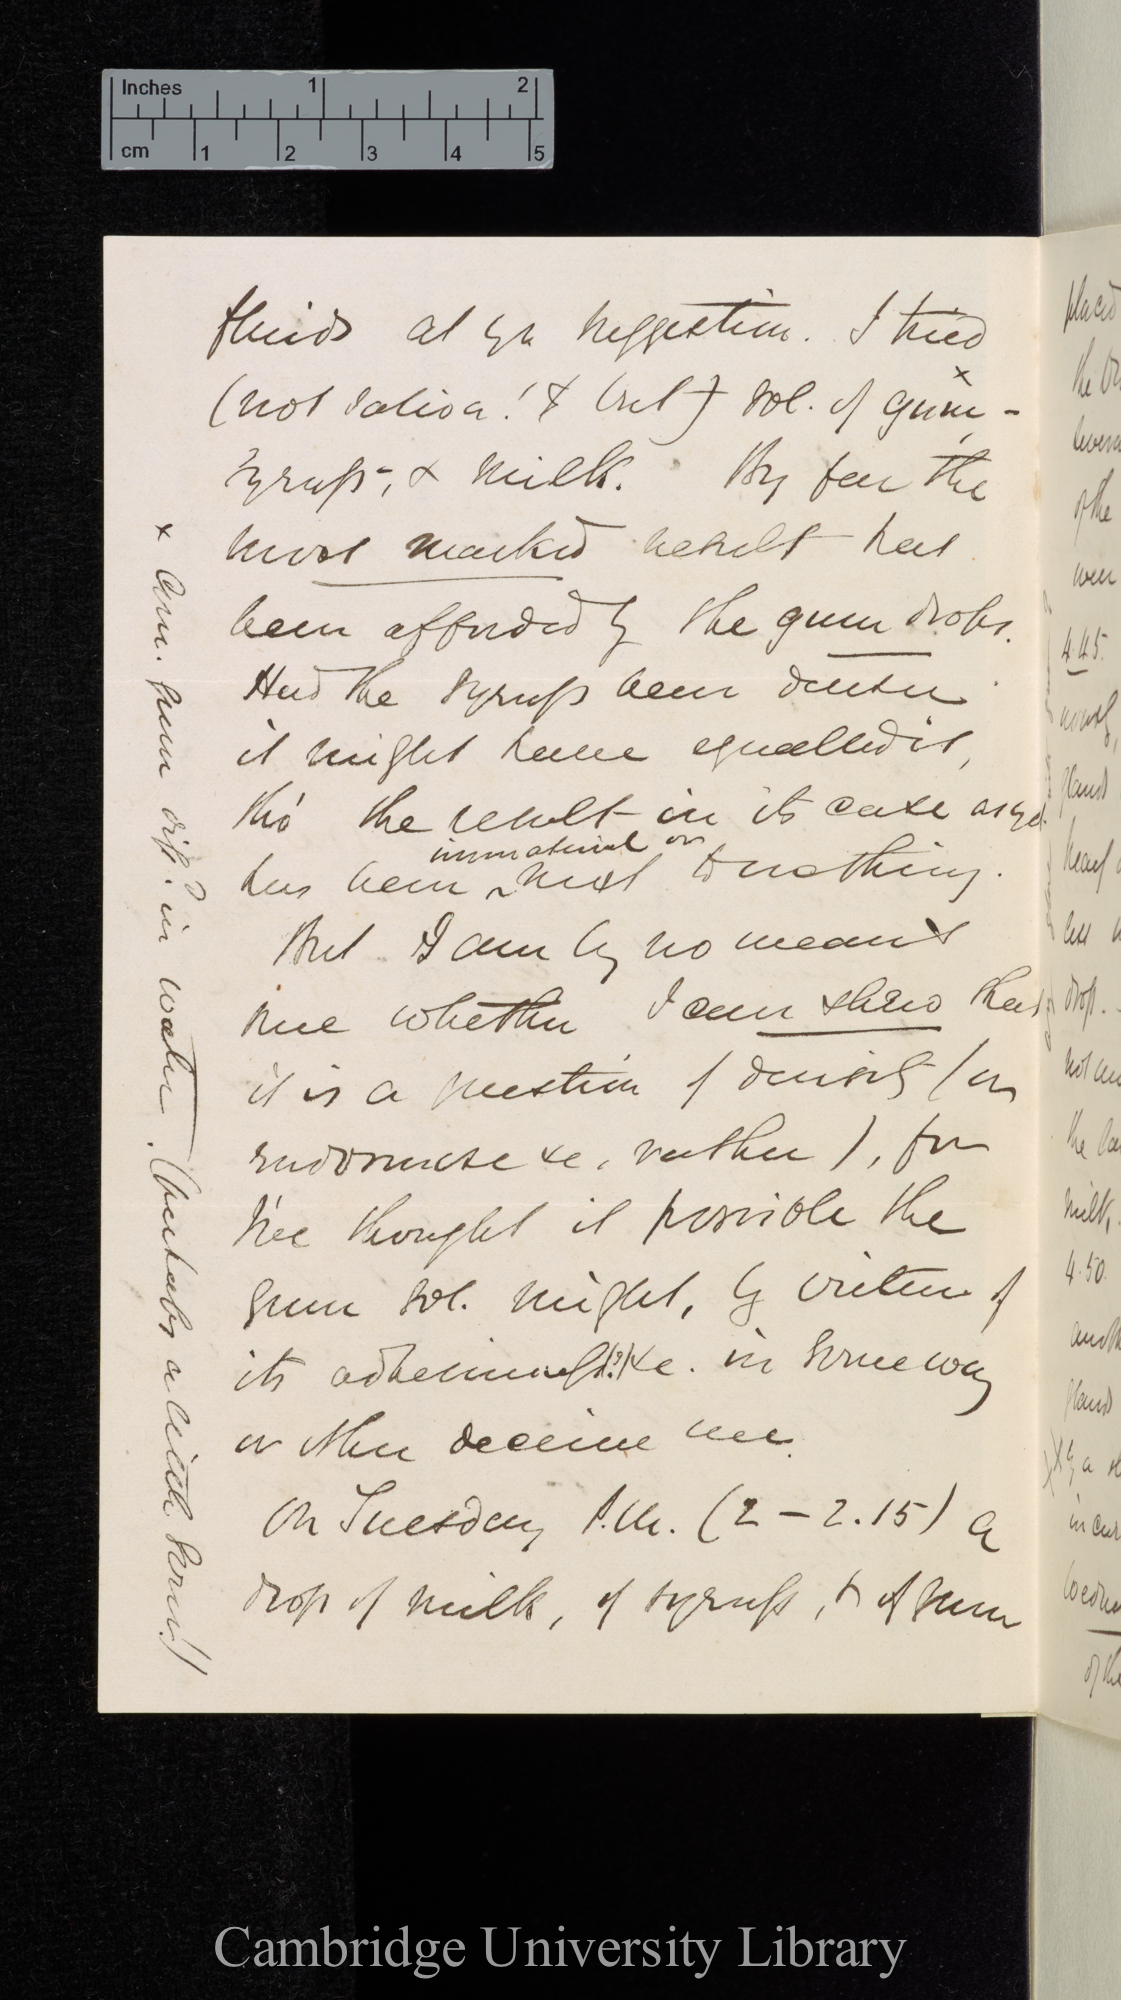 Inches 1 2
cm 1 2 3 4 5
fluids at yr suggestion. I tried
(not saliva! & but) sol. of gum x -
syrup-, & milk. By far the
most marked result has
been afforded by the gum drops.
Had the syrup been denser
it might have equalled it,
tho' the result in its case as yet
has been immaterial or next to nothing.
But I am by no means
sure whether I can shew that
it is a question of density (or
endosmose &c, rather), for
I've thought it possible the
gum sol. might, by virtue of
its adhesiveness(?) &c. in some way
or other deceive me.
On Tuesday P.M. (2 - 2.15) a
drop of milk, of syrup, & of gum
x Am. gum diss. in water. (perhaps a little sour!)
placed
the
of the
were
4.45.
glands
drop.
the
milk,
4.50.
glands
of the
Cambridge University Library